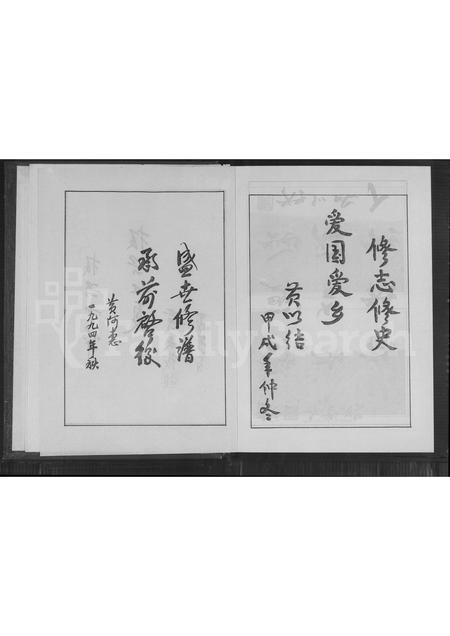 修志修史
爱国爱乡
黄以结
甲戌年仲冬
盛世修谱
承前启後
黄河志
一九九四年秋
FamilySearch